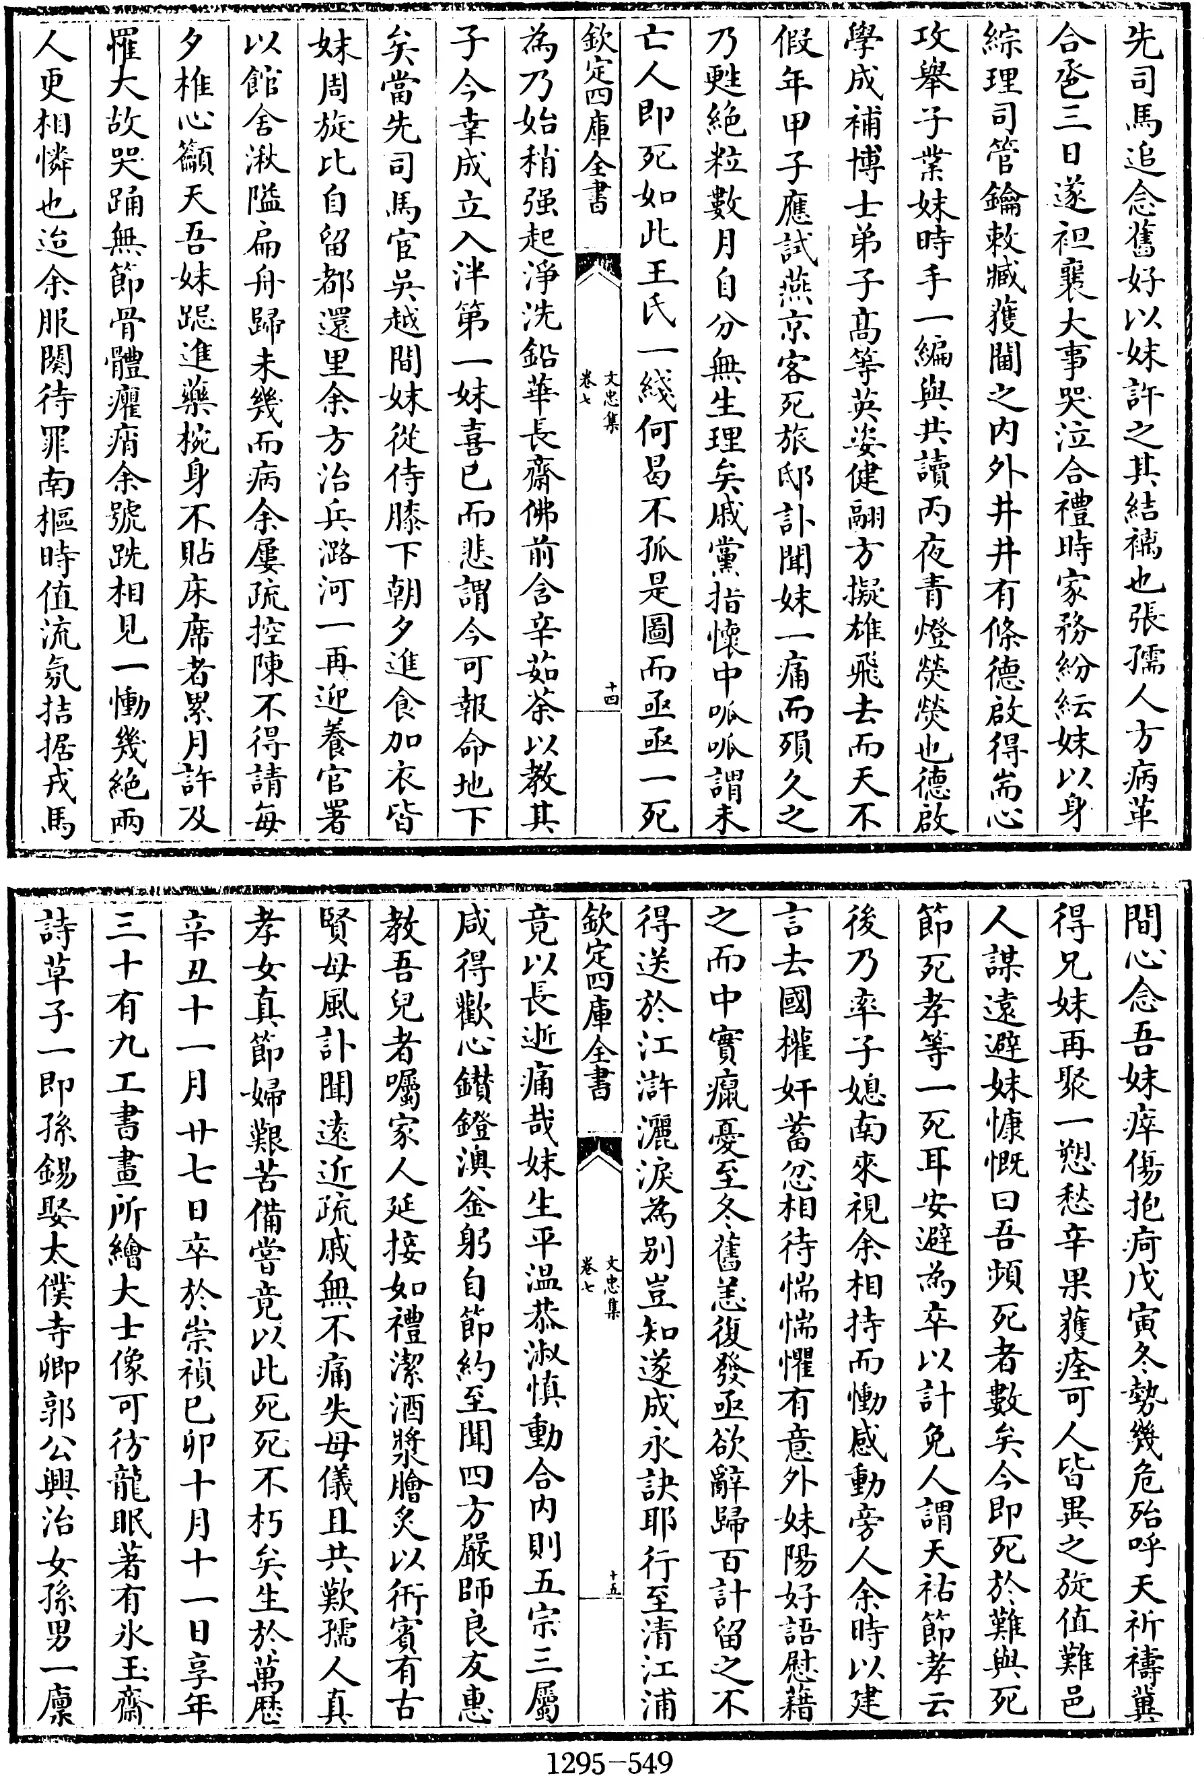 先司馬追念舊好以妹許之其結褵也張孺人方病革
合卺三日遂袒襄大事哭泣合禮時家務紛紜妹以身
綜理司管鑰敕臧獲閫之内外井井有條德啟得耑心
攻舉子業妹時手一編與共讀丙夜青燈熒熒也德啟
學成補博士弟子髙等英姿健翮方擬雄飛去而天不
假年甲子應試燕京客死旅邸訃聞妹一痛而殞久之
乃甦絶粒數月自分無生理矣戚黨指懷中呱呱謂未
亡人即死如此王氏一綫何曷不孤是圖而亟亟一死
欽定四庫全書
文忠集
卷七
十四
為乃始稍强起淨洗鉛華長齋佛前含辛茹荼以教其
子今幸成立入泮第一妹喜已而悲謂今可報命地下
矣當先司馬宦吳越間妹從侍膝下朝夕進食加衣皆
妹周旋比自留都還里余方治兵潞河一再迎養官署
以館舍湫隘扁舟歸未幾而病余屢疏控陳不得請每
夕椎心籲天吾妹跽進藥椀身不貼床席者累月許及
罹大故哭踊無節骨體癯瘠余號跣相見一慟幾絶兩
人更相憐也迨余服闋待罪南樞時值流氛拮据戎馬
間心念吾妹瘁傷抱疴戊寅冬勢幾危殆呼天祈禱冀
得兄妹再聚一愬愁辛果獲痊可人皆異之旋值難邑
人謀遠避妹慷慨曰吾頻死者數矣今即死於難與死
節死孝等一死耳安避為卒以計免人謂天祐節孝云
後乃率子媳南來視余相持而慟感動旁人余時以建
言去國權奸蓄忿相待惴惴懼有意外妹陽好語慰藉
之而中實㾮憂至冬舊恙復發亟欲辭歸百計留之不
得送於江滸灑淚為别豈知遂成永訣耶行至清江浦
欽定四庫全書
文忠集
卷七
十五
竟以長逝痛哉妹生平温恭淑慎動合内則五宗三屬
咸得歡心鑚鐙澳釜躬自節約至聞四方嚴師良友惠
教吾兒者囑家人延接如禮潔酒漿膾炙以衎賓有古
賢母風訃聞遠近疏戚無不痛失母儀且共歎孺人真
孝女真節婦艱苦備嘗竟以此死死不朽矣生於萬厯
辛丑十一月廿七日卒於崇禎已卯十月十一日享年
三十有九工書畫所繪大士像可彷龍眠著有氷玉齋
詩草子一即孫錫娶太僕寺卿郭公興治女孫男一廩
1295-549